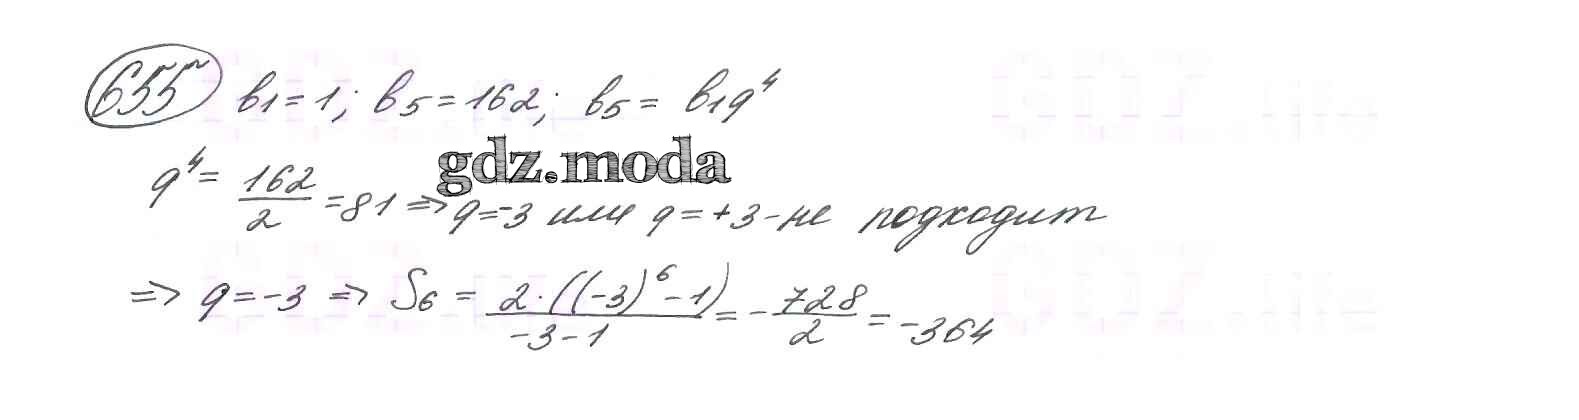 655 b₁ = 1; b₅ = 162; b₅ = b₁q⁴
gdz.moda
q⁴ = 162/2 = 81 => q = -3 или q = +3 - не подходит
=> q = -3 => S₆ = 2·((-3)⁶ - 1)/-3 - 1 = - 728/2 = -364